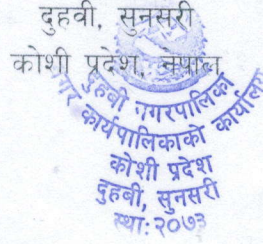 दुहवी, सुनसरी
कोशी प्रदेश, नेपाल
दुहवी नगरपालिका
नगर कार्यपालिकाको कार्यालय
कोशी प्रदेश
दुहबी, सुनसरी
स्था: २०७३